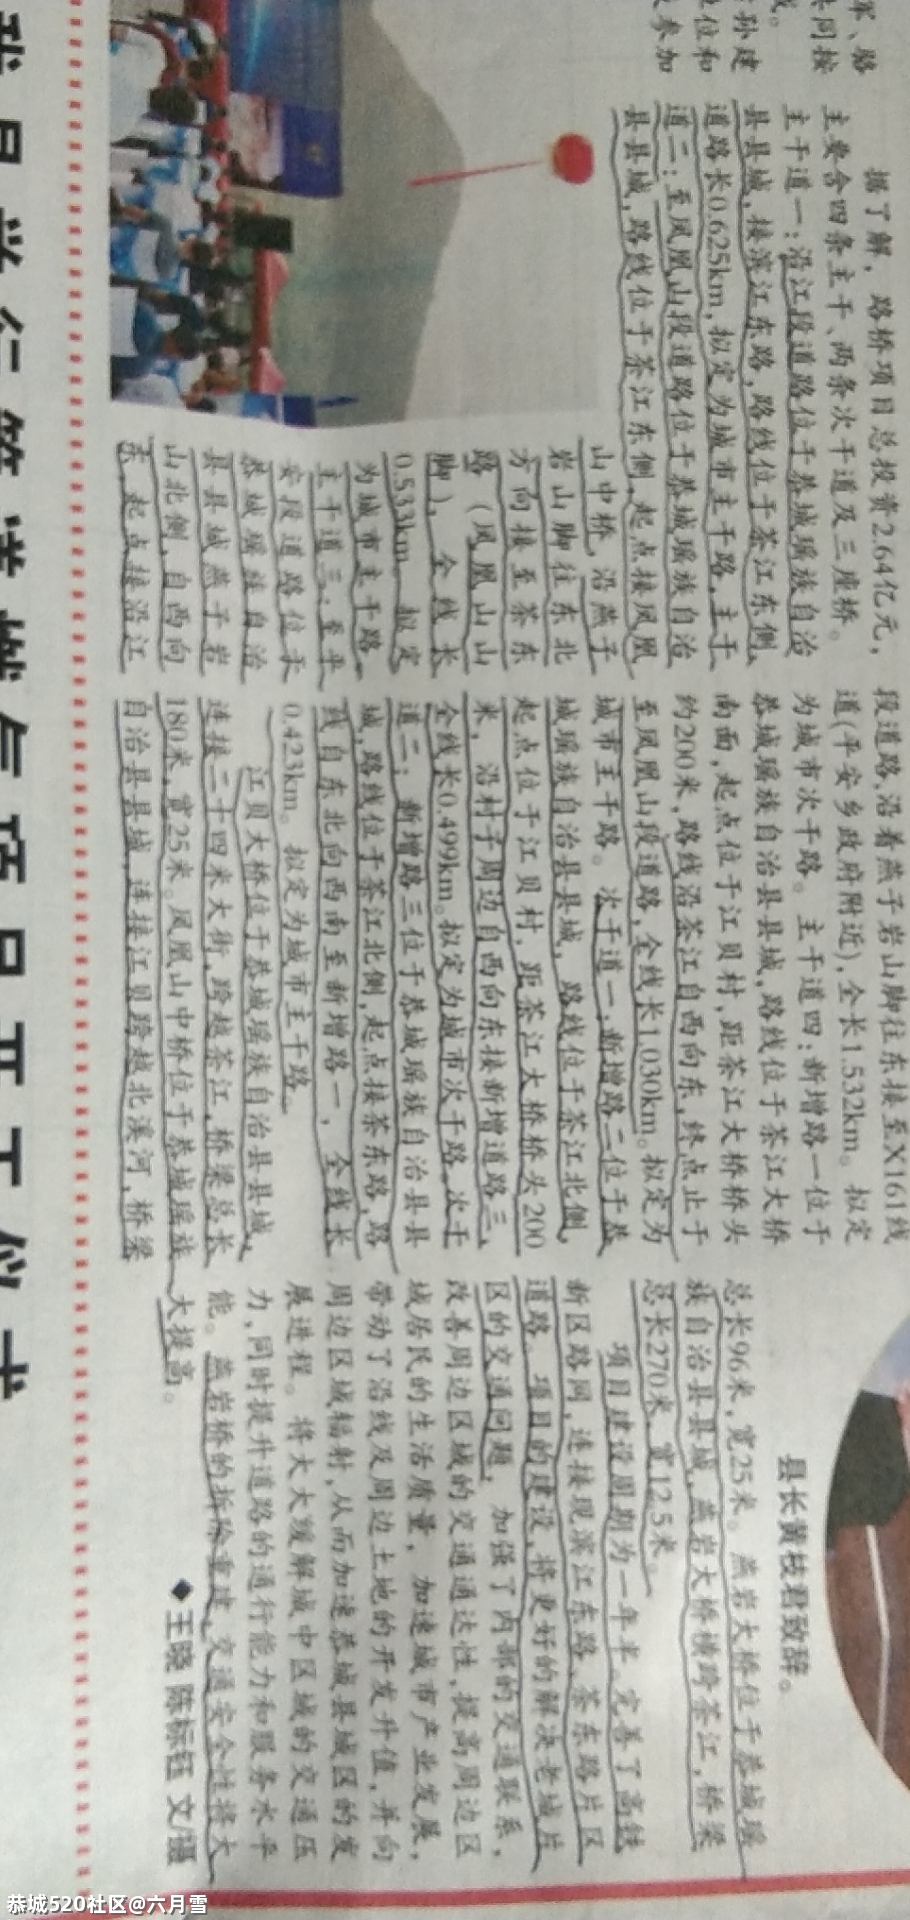 军、骆
共同按
孙建
位和
参加
据了解，路桥项目总投资2.64亿元，
主要含四条主干、两条次干道及三座桥。
主干道一：沿江段道路位于恭城瑶族自治
县县城，接滨江东路，路线位于茶江东侧，
道路长0.625km，拟定为城市主干路，主干
道二：至凤凰山段道路位于恭城瑶族自治
县县城，路线位于茶江东侧，起点接凤凰
山中桥，沿燕子
岩山脚往东北
方向接至茶东
路（凤凰山山
脚），全线长
0.533km，拟定
为城市主干路。
主干道三：至平
安段道路位于
恭城瑶族自治
县县城燕子岩
山北侧，自西向
东，起点接沿江
段道路，沿着燕子岩山脚往东接至X161线
道(平安乡政府附近)，全长1.532km。拟定
为城市次干路。主干道四：新增路一位于
恭城瑶族自治县县城，路线位于茶江大桥
南面，起点位于江贝村，距茶江大桥桥头
约200米，路线沿茶江自西向东，终点止于
至凤凰山段道路，全线长1.030km。拟定为
城市主干路。次干道一，新增路二位于恭
城瑶族自治县县城，路线位于茶江北侧，
起点位于江贝村，距茶江大桥桥头200
米，沿村子周边自西向东接新增道路三，
全线长0.499km。拟定为城市次干路。次干
道二：新增路三位于恭城瑶族自治县县
城，路线位于茶江北侧，起点接茶东路，路
线自东北向西南至新增路一，全线长
0.423km。拟定为城市主干路。
江贝大桥位于恭城瑶族自治县县城，
连接二十四米大街，跨越茶江，桥梁总长
180米，宽25米。凤凰山中桥位于恭城瑶族
自治县县城，连接江贝跨越北溪河，桥梁
县长黄枝君致辞。
总长96米，宽25米。燕岩大桥位于恭城瑶
族自治县县城，燕岩大桥横跨茶江，桥梁
总长270米，宽12.5米。
项目建设周期为一年半。完善了高铁
新区路网，连接现滨江东路、茶东路片区
道路。项目的建设，将更好的解决老城片
区的交通问题，加强了内部的交通联系，
改善周边区域的交通通达性，提高周边区
域居民的生活质量，加速城市产业发展，
带动了沿线及周边土地的开发升值，并向
周边区域辐射，从而加速恭城县城区的发
展进程。将大大缓解城中区域的交通压
力，同时提升道路的通行能力和服务水平
能。燕岩桥的拆除重建，交通安全性将大
大提高。
◆王晓 陈标钰 文/摄
恭城520社区@六月雪